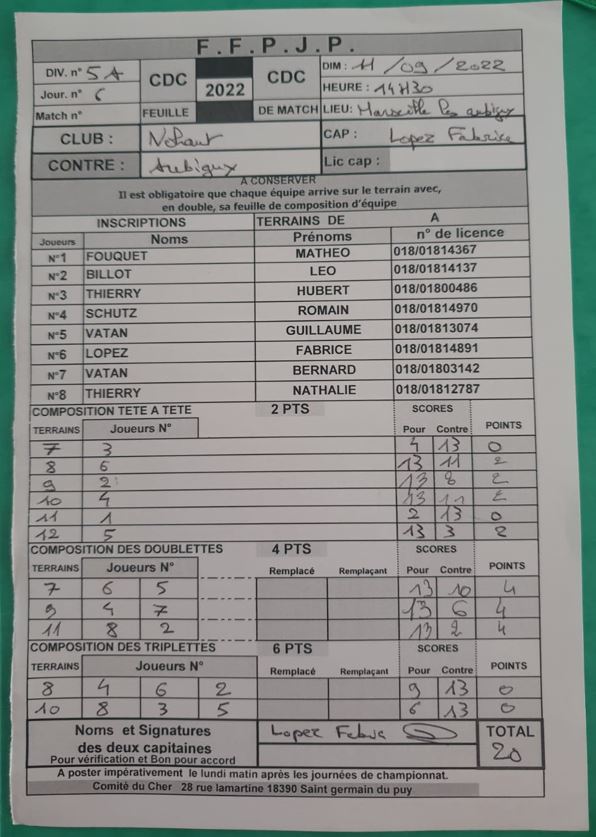 F.F.P.J.P.
DIV. n° 5A CDC 2022 CDC DIM : 11/09/2022
Jour. n° 6 HEURE : 14H30
Match n° FEUILLE DE MATCH LIEU: Marseille les aubigny
CLUB : Nohant CAP : Lopez Fabrice
CONTRE : Aubigny Lic cap :
A CONSERVER
Il est obligatoire que chaque équipe arrive sur le terrain avec,
en double, sa feuille de composition d'équipe
INSCRIPTIONS TERRAINS DE A
Joueurs Noms Prénoms n° de licence
N°1 FOUQUET MATHEO 018/01814367
N°2 BILLOT LEO 018/01814137
N°3 THIERRY HUBERT 018/01800486
N°4 SCHUTZ ROMAIN 018/01814970
N°5 VATAN GUILLAUME 018/01813074
N°6 LOPEZ FABRICE 018/01814891
N°7 VATAN BERNARD 018/01803142
N°8 THIERRY NATHALIE 018/01812787
COMPOSITION TETE A TETE 2 PTS SCORES
TERRAINS Joueurs N° Pour Contre POINTS
7 3 4 13 0
8 6 13 11 2
9 2 13 8 2
10 4 13 11 2
11 1 2 13 0
12 5 13 3 2
COMPOSITION DES DOUBLETTES 4 PTS SCORES
TERRAINS Joueurs N° Remplacé Remplaçant Pour Contre POINTS
7 6 5 13 10 4
9 4 7 13 6 4
11 8 2 13 2 4
COMPOSITION DES TRIPLETTES 6 PTS SCORES
TERRAINS Joueurs N° Remplacé Remplaçant Pour Contre POINTS
8 4 6 2 9 13 0
10 8 3 5 6 13 0
Noms et Signatures Lopez Fabrice TOTAL
des deux capitaines 20
Pour vérification et Bon pour accord
A poster impérativement le lundi matin après les journées de championnat.
Comité du Cher 28 rue lamartine 18390 Saint germain du puy